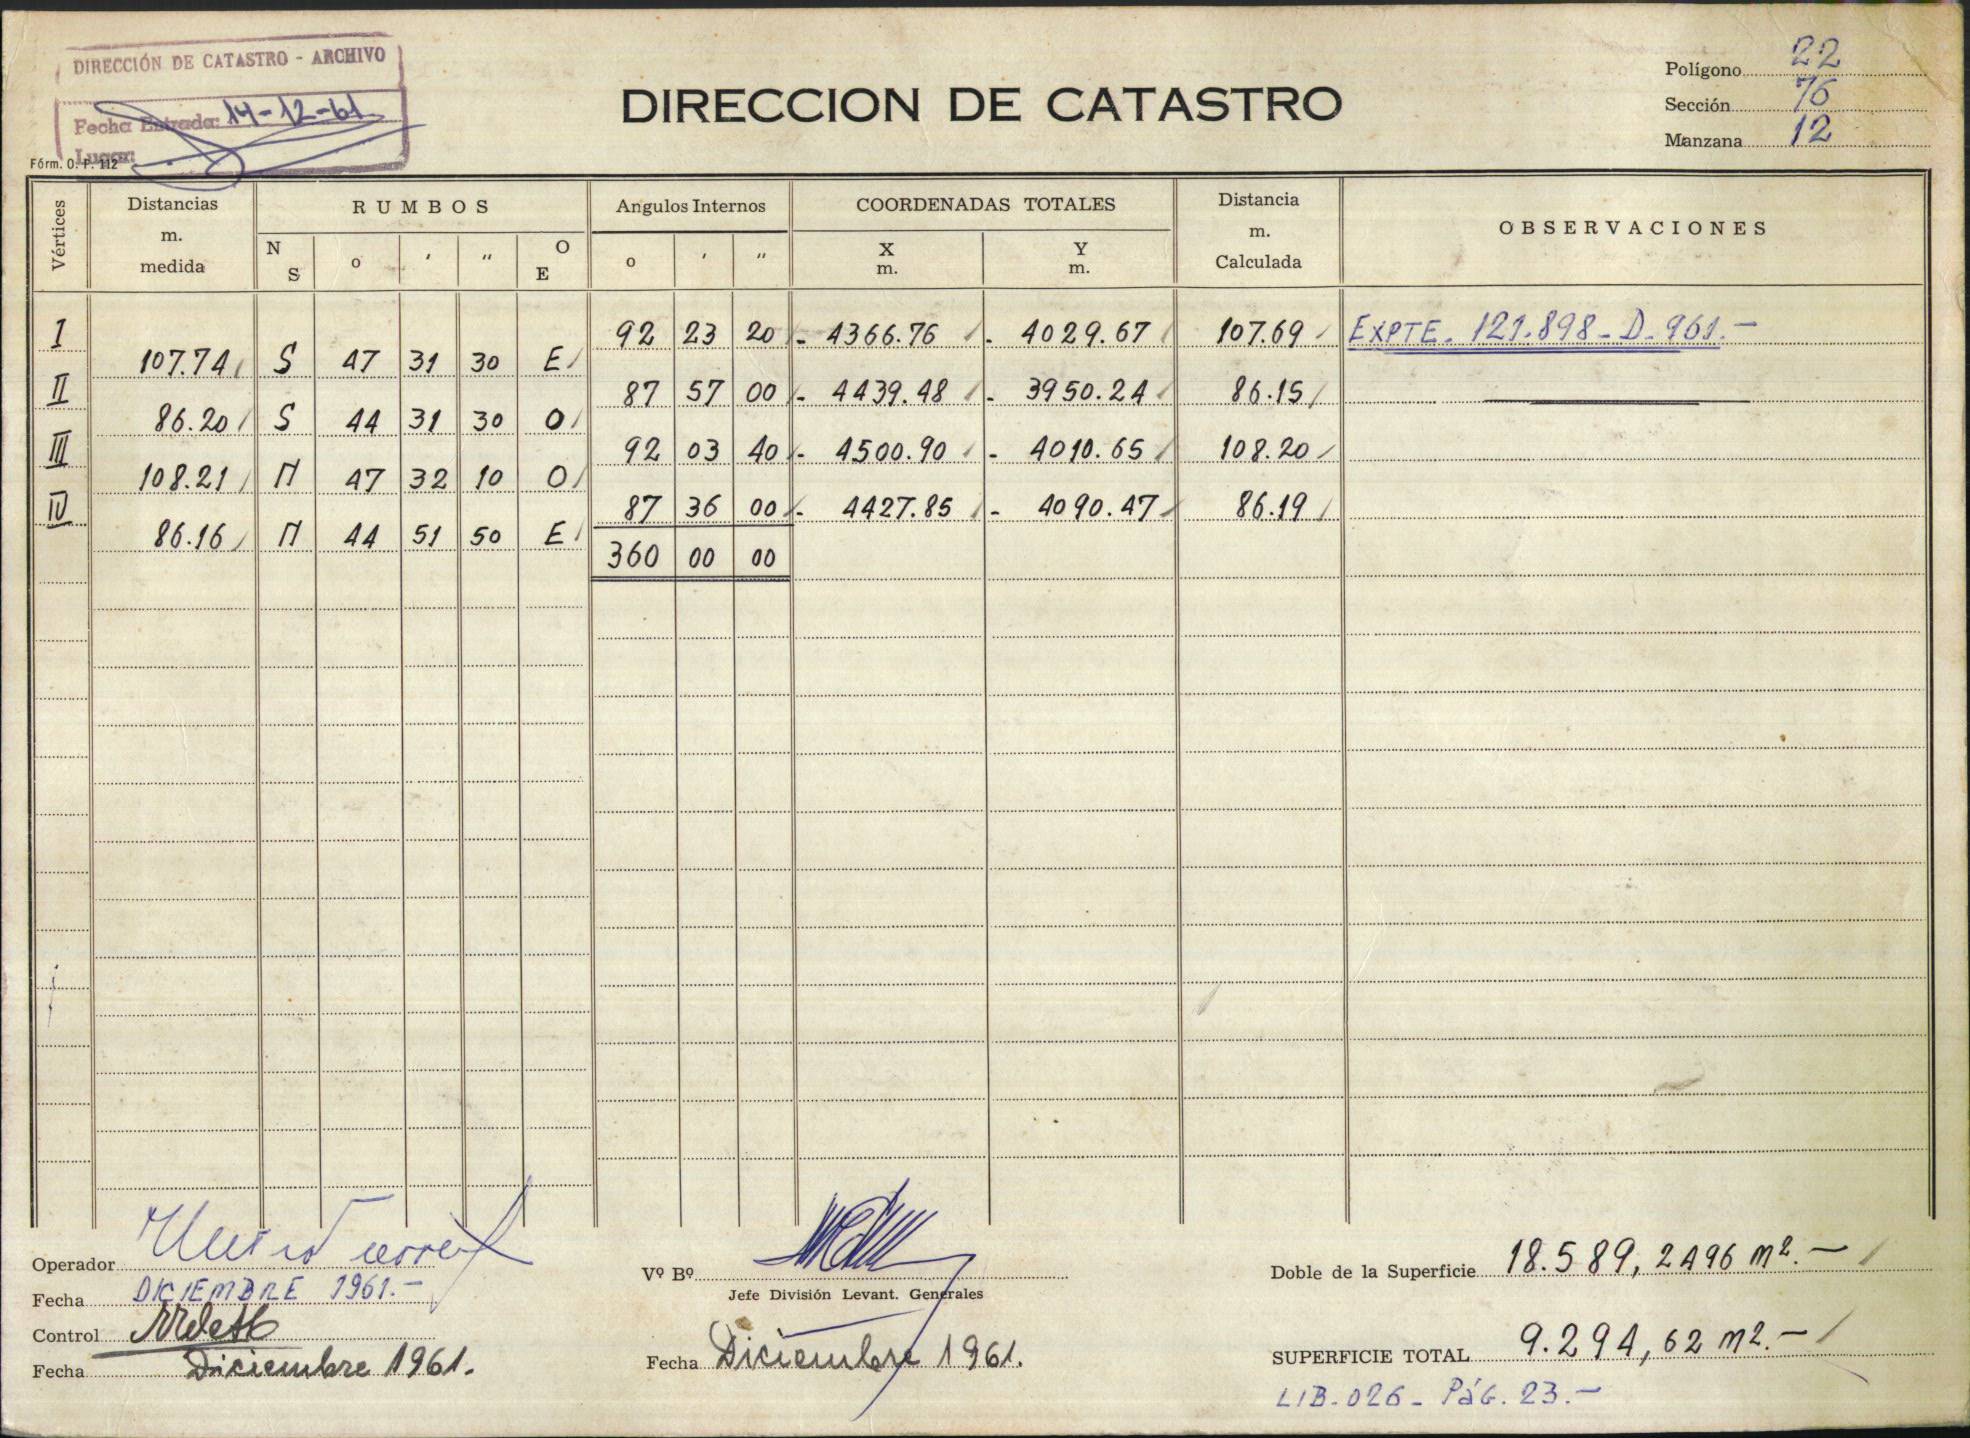 DIRECCIÓN DE CATASTRO - ARCHIVO
Fecha Entrada: 14-12-61
Lugar:
Fórm. O. P. 112
DIRECCION DE CATASTRO
Polígono 22
Sección 76
Manzana 12
Vértices Distancias m. medida RUMBOS Angulos Internos COORDENADAS TOTALES Distancia m. Calculada OBSERVACIONES
N S o ' " O E o ' " X m. Y m.
I 92 23 20 - 4366.76 - 4029.67 107.69 EXPTE. 121.898-D-961.-
107.74 S 47 31 30 E
II 87 57 00 - 4439.48 - 3950.24 86.15
86.20 S 44 31 30 O
III 92 03 40 - 4500.90 - 4010.65 108.20
108.21 N 47 32 10 O
IV 87 36 00 - 4427.85 - 4090.47 86.19
86.16 N 44 51 50 E
360 00 00
Operador
Fecha DICIEMBRE 1961.-
Control
Fecha Diciembre 1961.
Vº Bº
Jefe División Levant. Generales
Fecha Diciembre 1961.
Doble de la Superficie 18.589,2496 m².-
SUPERFICIE TOTAL 9.294,62 m².-
LIB.026- Pág. 23.-